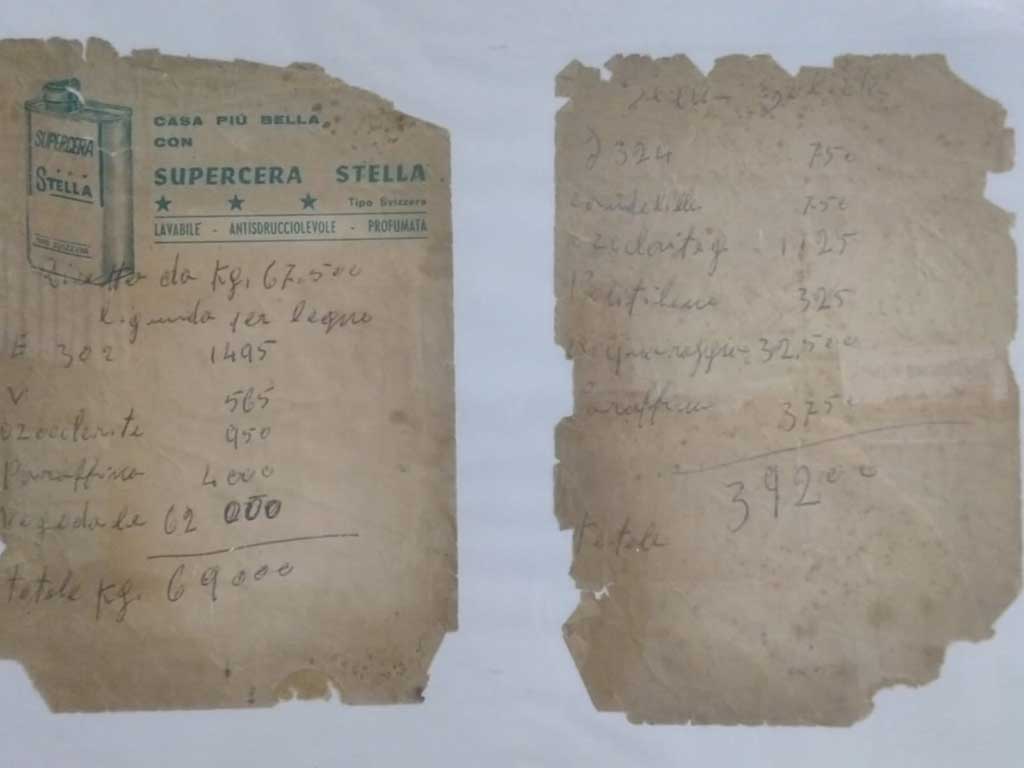 SUPERCERA
STELLA
TIPO SVIZZERA
CASA PIÙ BELLA
CON
SUPERCERA STELLA
Tipo Svizzera
LAVABILE - ANTISDRUCCIOLEVOLE - PROFUMATA
da Kg. 67.500
liquida per legno
E 302 1495
V 565
ozocherite 950
Paraffina 4000
62 000
totale Kg. 69000
324 750
750
1125
325
acquaraggia 32,500
Paraffina 3750
39200
totale